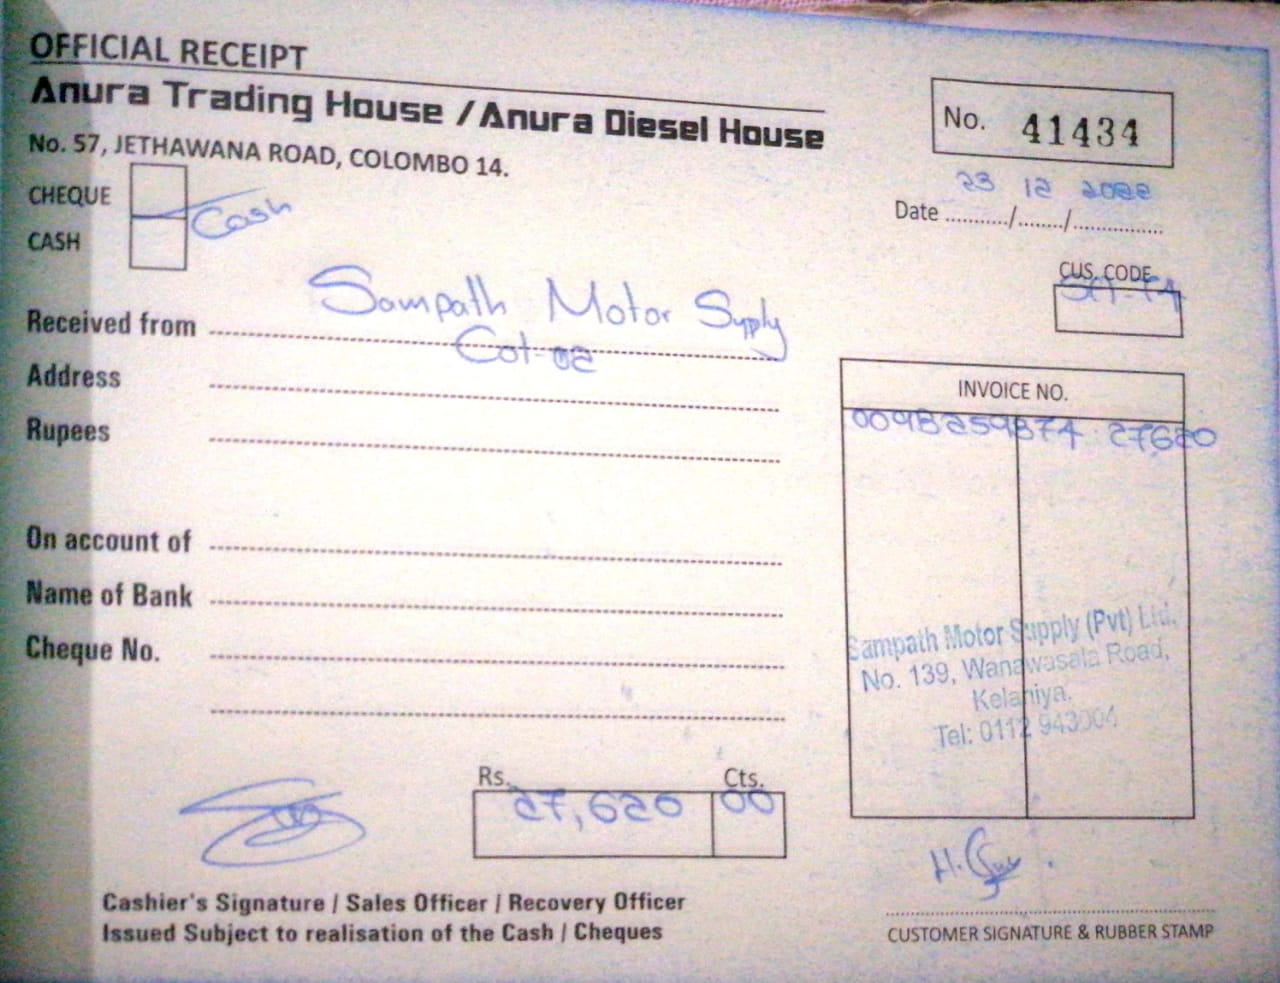 OFFICIAL RECEIPT
Anura Trading House / Anura Diesel House
No. 57, JETHAWANA ROAD, COLOMBO 14.
No. 41434
CHEQUE
CASH
Cash
23 12 2022
Date .........../......../................
CUS. CODE
Received from Sampath Motor Supply
Address
Rupees
INVOICE NO.
27,620
On account of
Name of Bank
Cheque No.
Sampath Motor Supply (Pvt) Ltd.
No. 139, Wanawasala Road,
Kelaniya.
Tel: 0112 943004
Rs. Cts.
27,620 00
Cashier's Signature / Sales Officer / Recovery Officer
Issued Subject to realisation of the Cash / Cheques
CUSTOMER SIGNATURE & RUBBER STAMP